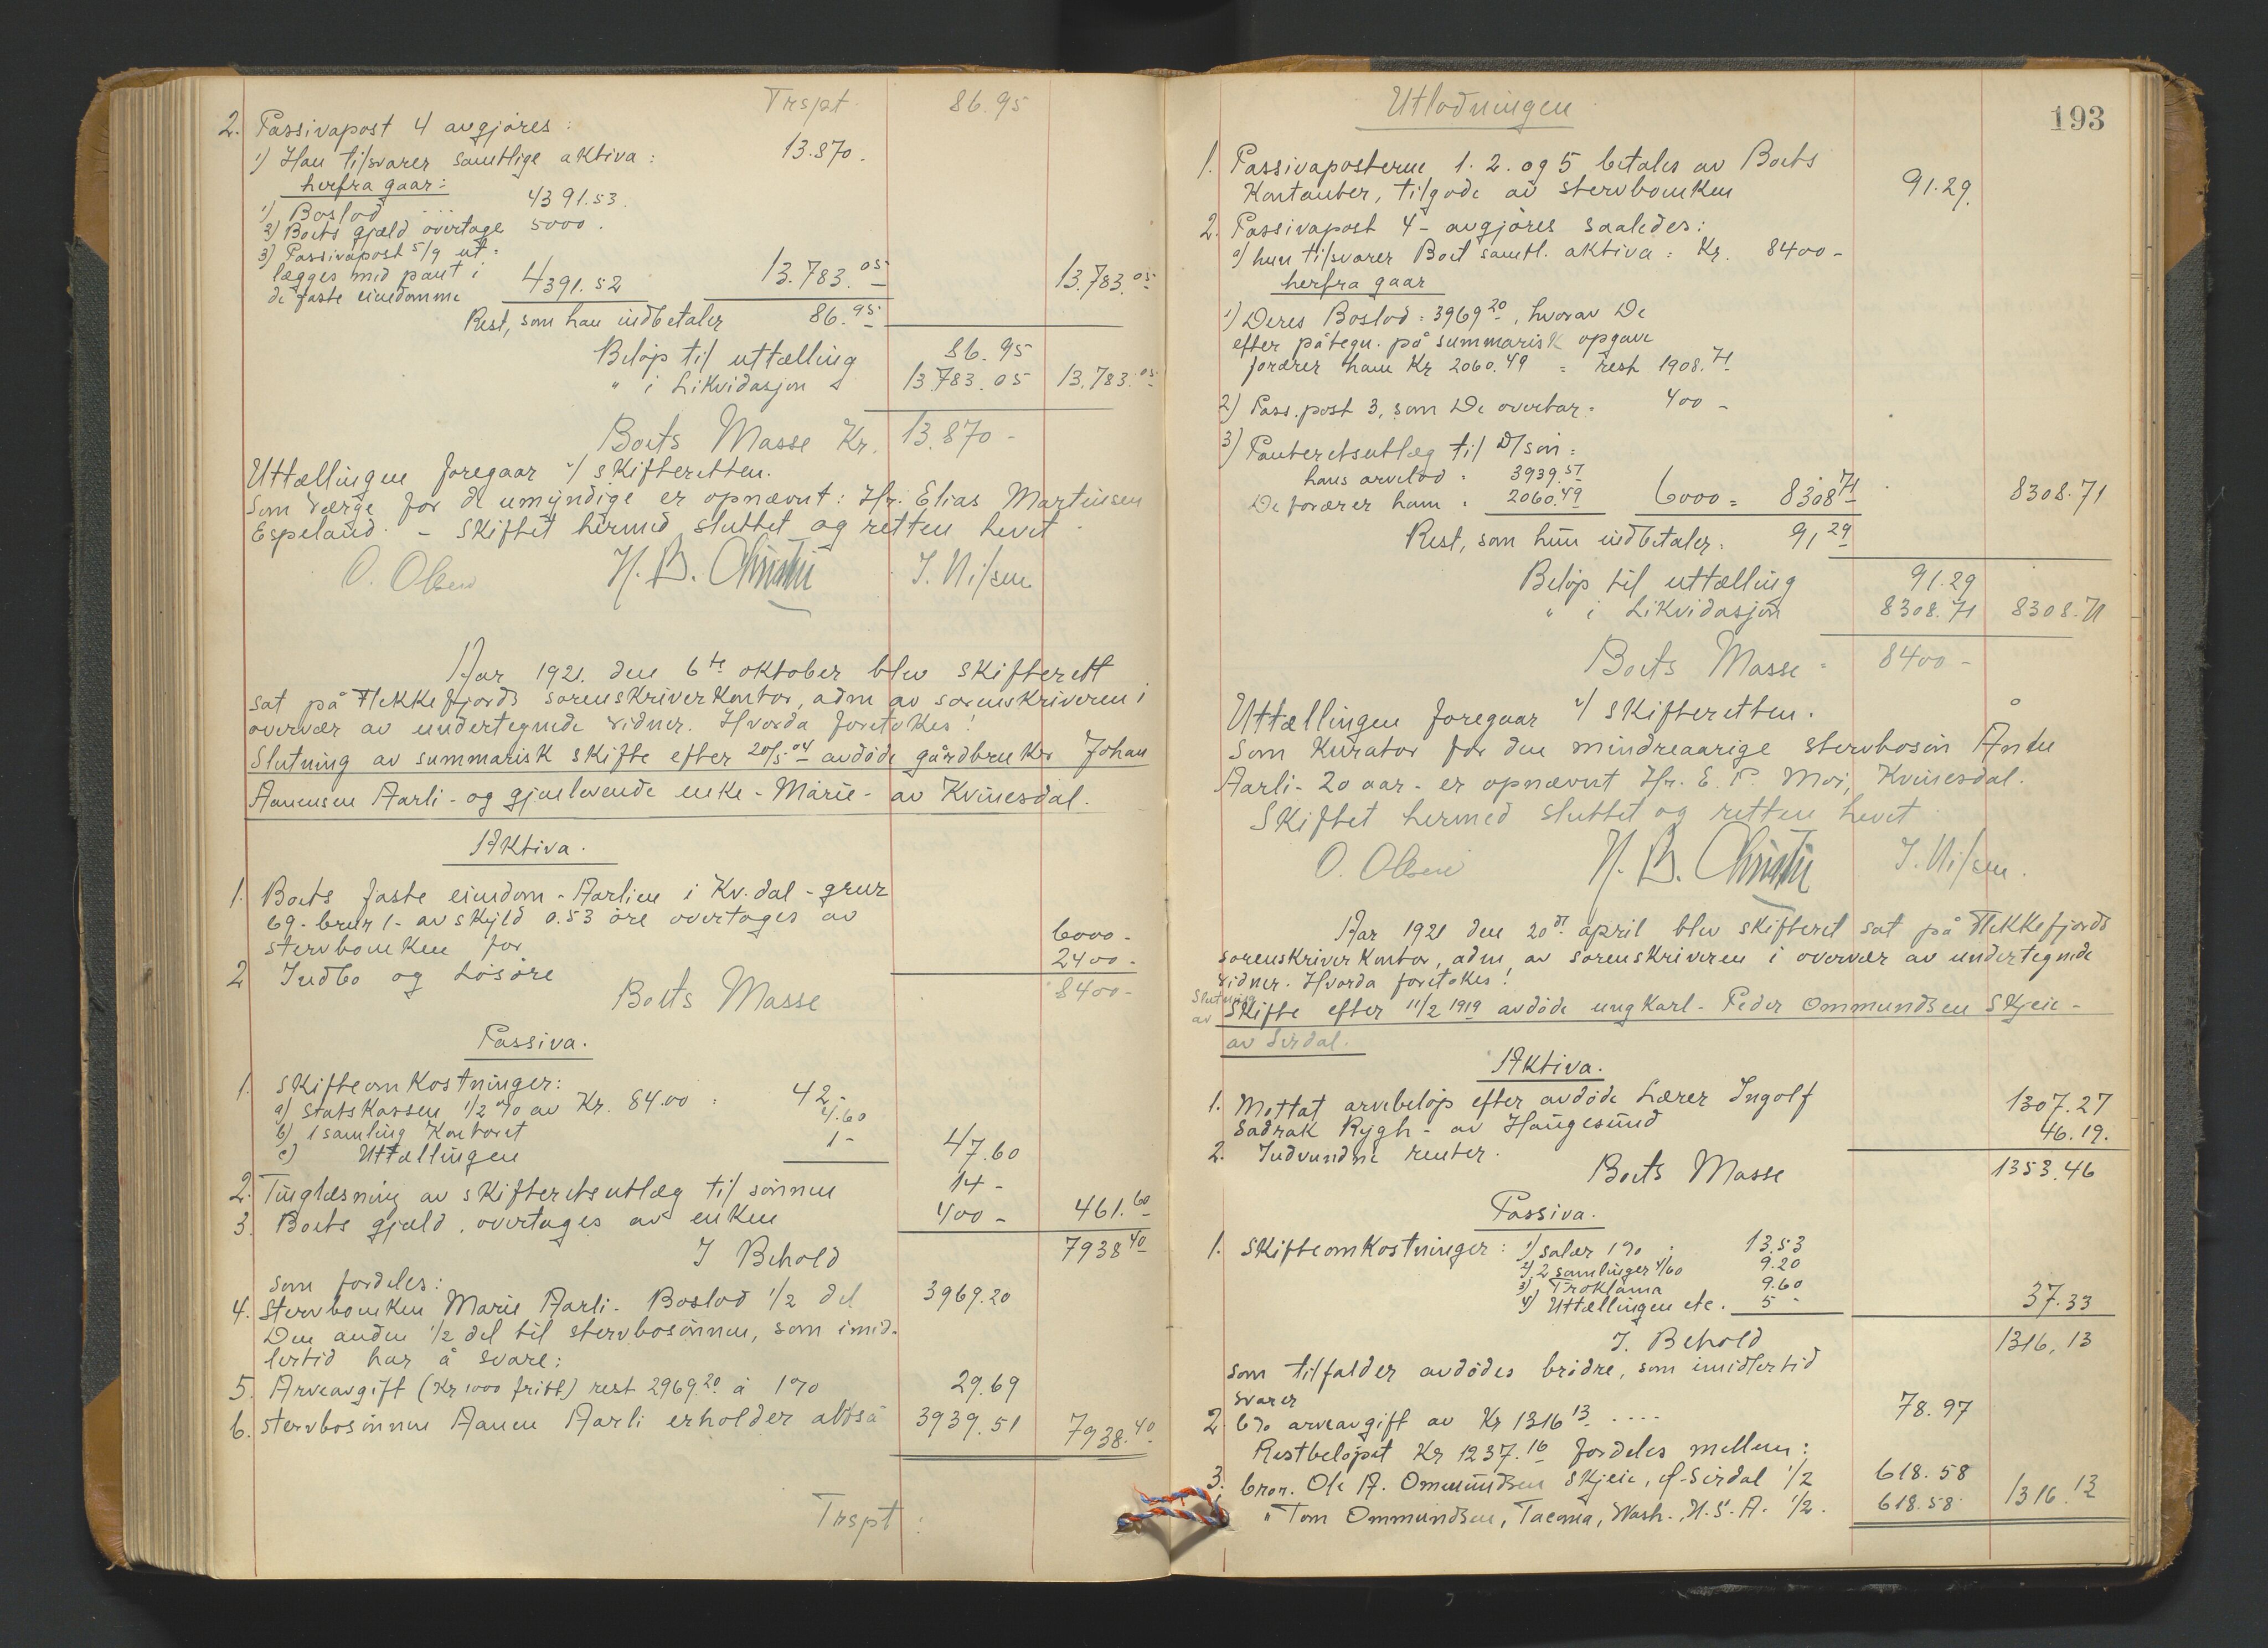 Trspt. 86.95
2. Passivapost 4 avgjøres:
1) Han tilsvarer samtlige aktiva: 13.870.
herfra gaar:
1) Boslod ... 4391.53.
2) Boets gjæld overtage 5000.
3) Passivapost 5/9 ut-
lægges med pant i
de faste eiendomme 4391.52 13.783.05 13.783.05
Rest, som han indbetaler 86.95
Beløp til uttælling 86.95
" i Likvidasjon 13783.05 13.783.05
Boets Masse Kr. 13.870-
Uttællingen foregaar v/ skifteretten.
Som værge for de umyndige er opnævnt: Hr. Elias Martinsen
Espeland. - Skiftet hermed sluttet og retten hevet.
O. Olsen H. B. Christie J. Nilsen
Aar 1921. den 6te oktober blev skifterett
sat på Flekkefjords sorenskriverkontor, adm av sorenskriveren i
overvær av undertegnede vidner. Hvorda foretokes!
Slutning av summarisk skifte efter 20/5-04 avdøde gårdbruker Johan
Aanensen Aarli - og gjenlevende enke - Marie - av Kvinesdal.
Aktiva.
1. Boets faste eiendom - Aarlien i Kv.dal - gnr
69 - brnr 1 - av skyld 0.53 øre overtages av
stervboenken for 6000-
2 Indbo og løsøre 2400-
Boets Masse 8400-
Passiva.
1. Skifteomkostninger:
a) Statskassen 1/2 % av Kr. 84.00: 42-
b) 1 samling Kontoret 4.60
c) Uttællingen 1- 47.60
2. Tinglæsning av skifteretsutlæg til sønnen 14-
3. Boets gjæld, overtages av enken 400- 461.60
I Behold 7938.40
som fordeles:
4. Stervboenken Marie Aarli - Boslod 1/2 del 3969.20
Den anden 1/2 del til stervbosønnen, som imid-
lertid har å svare:
5. Arveavgift (Kr 1000 fritt) rest 2969.20 à 1% 29.69
6. Stervbosønnen Aanen Aarli erholder altså 3939.51 7938.40
Trspt:
193
Utlodningen
1. Passivaposterne 1. 2. og 5 betales av Boets
Kontanter, tilgode av stervboenken 91.29.
2. Passivapost 4 - avgjøres saaledes:
a) hun tilsvarer Boet samtl. aktiva: Kr. 8400-
herfra gaar
1) Deres Boslod: 3969.20, hvorav De
efter påtegn. på summarisk opgave
forærer ham Kr 2060.49 = rest 1908.71
2) Pass.post 3, som De overtar: 400-
3) Panteretsutlæg til D/søn:
hans arvelod: 3939.51
De forærer ham: 2060.49 6000 = 8308.71 8308.71
Rest, som hun indbetaler: 91.29
Beløp til uttælling 91.29
" i Likvidasjon 8308.71 8308.71
Boets Masse: 8400-
Uttællingen foregaar v/ skifteretten.
Som kurator for den mindreaarige stervbosøn Ånen
Aarli - 20 aar - er opnævnt Hr. E. P. Moi, Kvinesdal.
Skiftet hermed sluttet og retten hevet
O. Olsen H. B. Christie J. Nilsen.
Aar 1921 den 20de april blev skifteret sat på Flekkefjords
sorenskriverkontor, adm av sorenskriveren i overvær av undertegnede
vidner. Hvorda foretokes!
Slutning av Skifte efter 11/2 1919 avdøde ungkarl - Peder Ommundsen Skjeie -
av Sirdal.
Aktiva.
1. Mottat arvebeløp efter avdøde Lærer Ingolf
Sadrak Rygh - av Haugesund 1307.27
2. Indvundne renter. 46.19.
Boets Masse 1353.46
Passiva.
1. Skifteomkostninger: 1) salær 1%: 13.53
2) 2 samlinger 4/60 9.20
3) Proklama 9.60
4) Uttællingen etc. 5- 37.33
I Behold 1316,13
som tilfalder avdødes brødre, som imidlertid
svarer
2. 6% arveavgift av Kr 1316.13 .... 78.97
Restbeløpet Kr 1237.16 fordeles mellem:
3. bror. Ole A. Ommundsen Skjeie, Ø-Sirdal 1/2 618.58
" Tom Ommundsen, Tacoma, Wash., U.S.A. 1/2. 618.58 1316.13